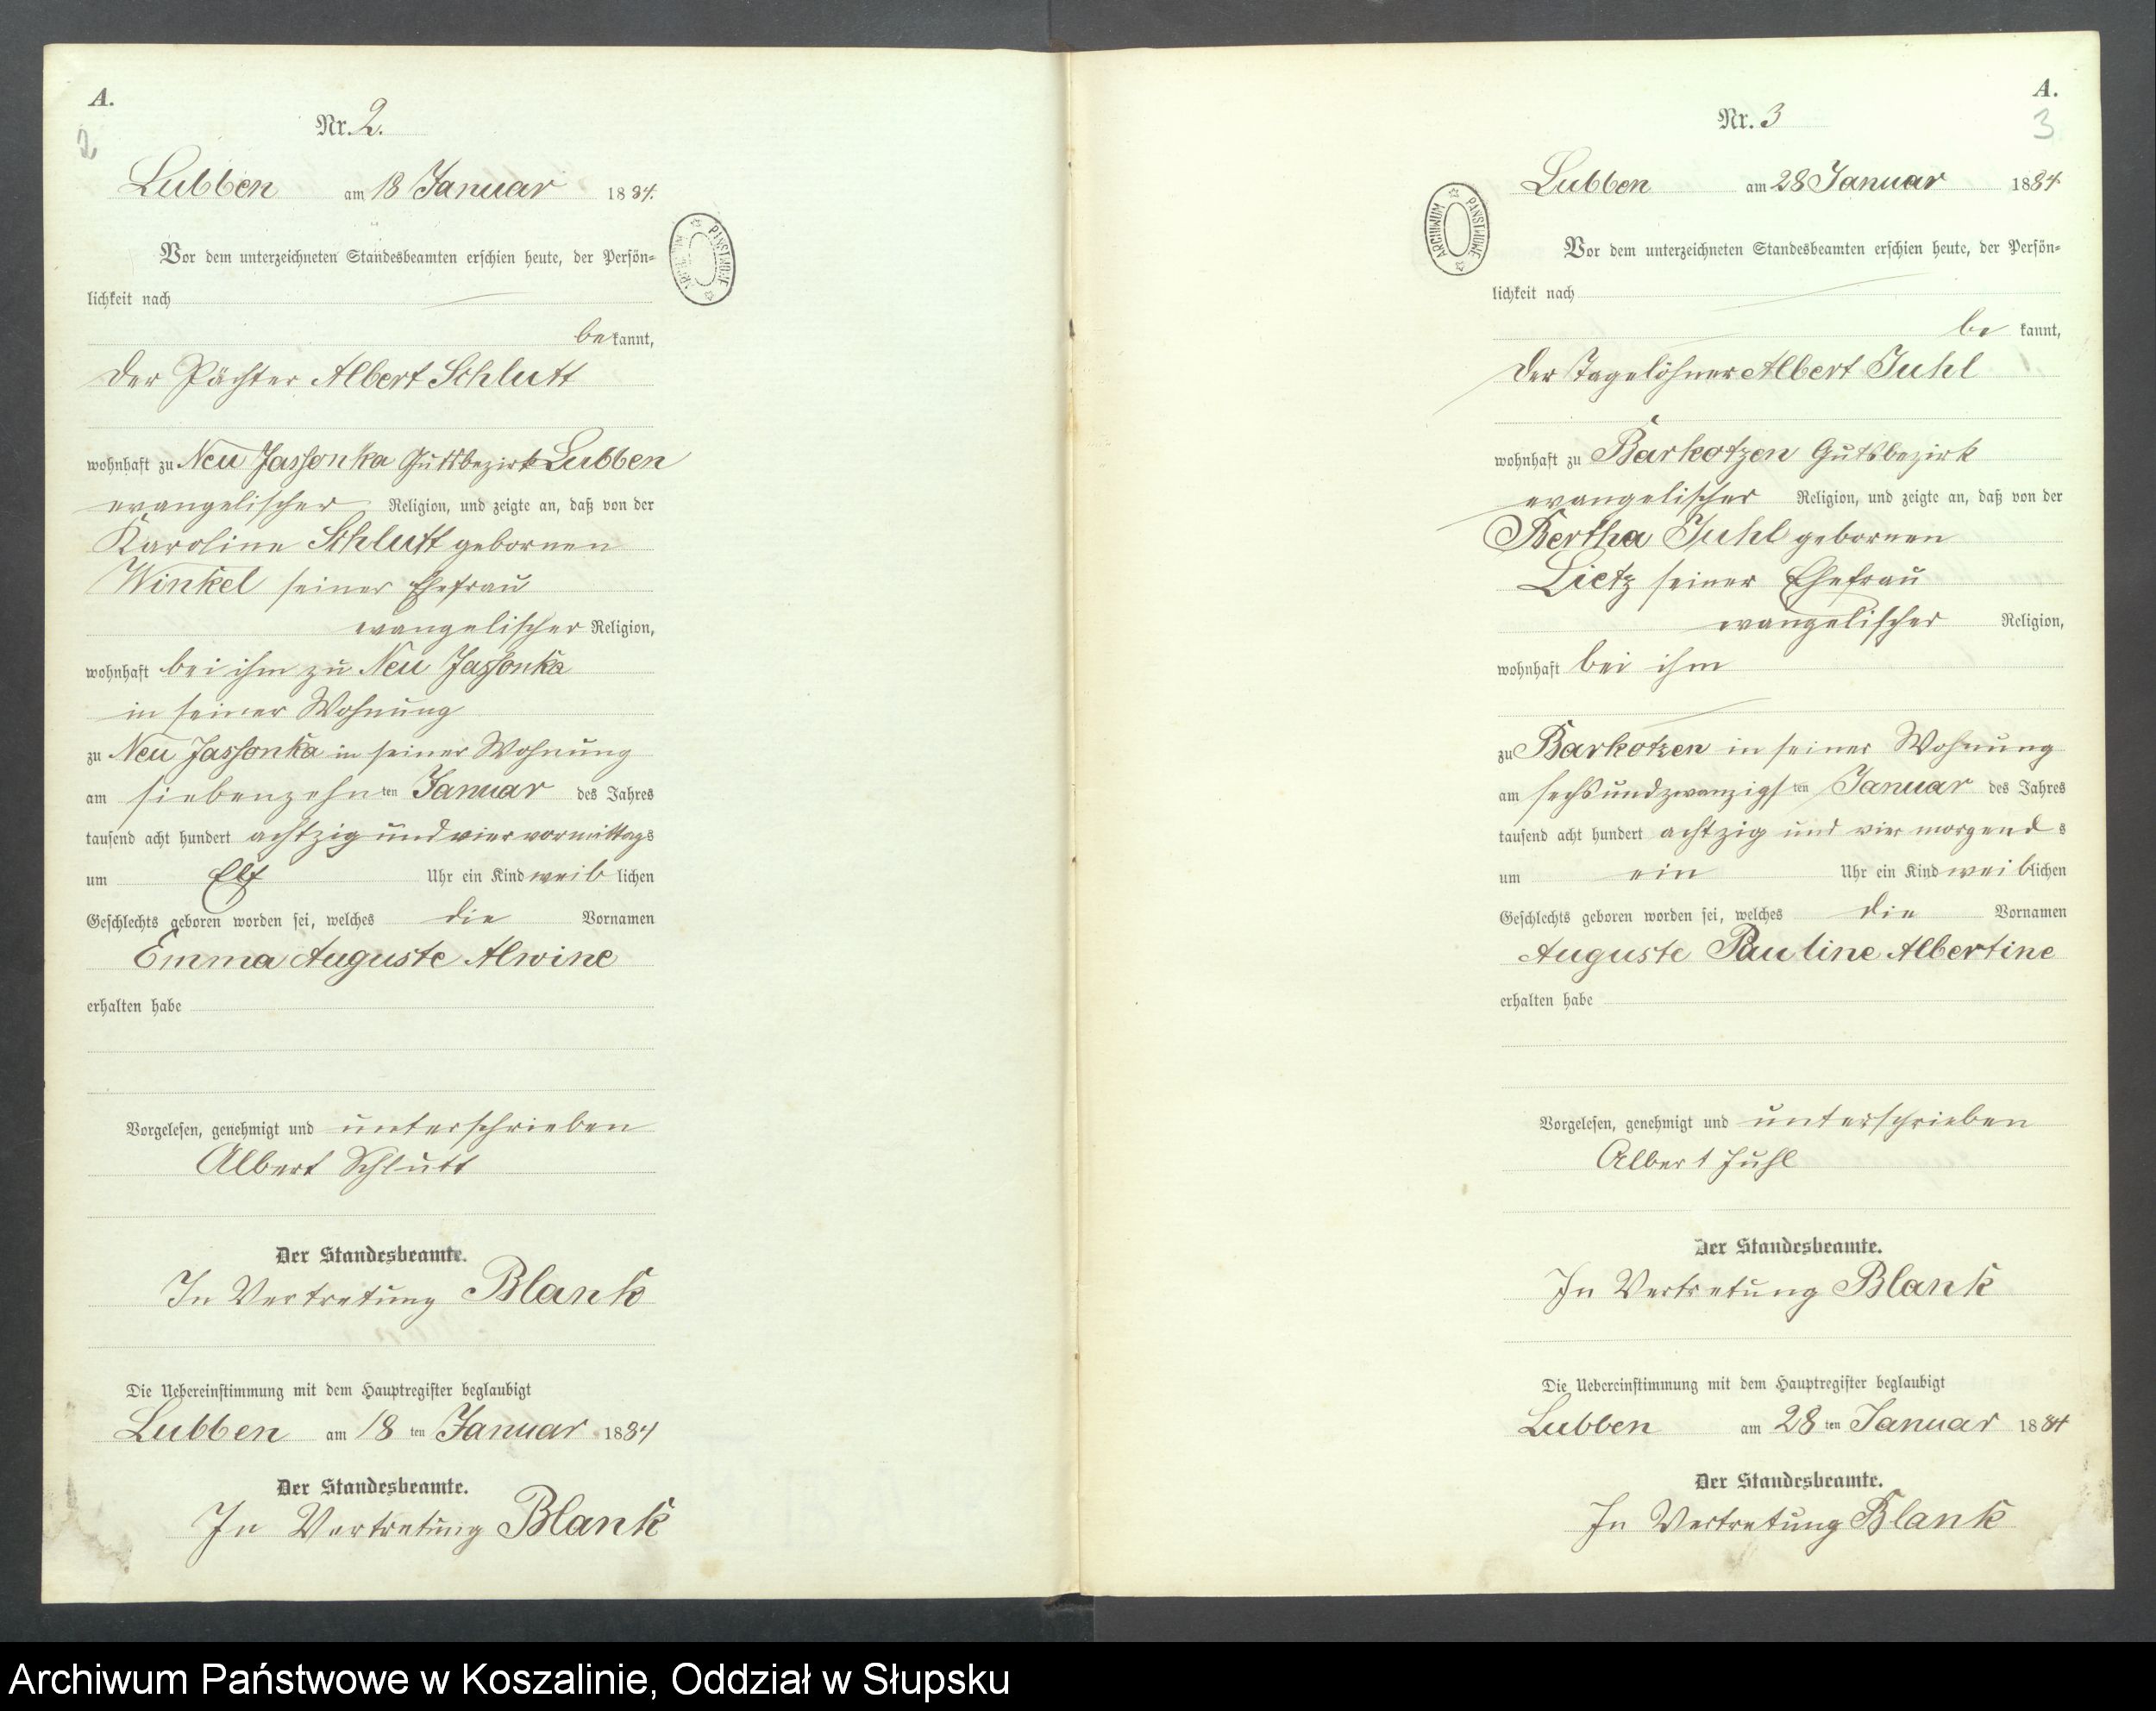 A.
2
Nr. 2.
Lubben am 18 Januar 1884.
Vor dem unterzeichneten Standesbeamten erschien heute, der Persön=
lichkeit nach
bekannt,
der Pächter Albert Schlutt
wohnhaft zu Neu Jassonka Gutsbezirk Lubben
evangelischer Religion, und zeigte an, daß von der
Karoline Schlutt gebornen
Winkel seiner Ehefrau
evangelischer Religion,
wohnhaft bei ihm zu Neu Jassonka
in seiner Wohnung
zu Neu Jassonka in seiner Wohnung
am siebenzehnten Januar des Jahres
tausend acht hundert achtzig und vier vormittags
um Elf Uhr ein Kind weiblichen
Geschlechts geboren worden sei, welches die Vornamen
Emma Auguste Alwine
erhalten habe
Vorgelesen, genehmigt und unterschrieben
Albert Schlutt
Der Standesbeamte.
In Vertretung Blank
Die Uebereinstimmung mit dem Hauptregister beglaubigt
Lubben am 18 ten Januar 1884
Der Standesbeamte.
In Vertretung Blank
ARCHIWUM PAŃSTWOWE
A.
3
Nr. 3
Lubben am 28 Januar 1884.
ARCHIWUM PAŃSTWOWE
Vor dem unterzeichneten Standesbeamten erschien heute, der Persön=
lichkeit nach
be kannt,
der Tagelöhner Albert Juhl
wohnhaft zu Barkotzen Gutsbezirk
evangelischer Religion, und zeigte an, daß von der
Bertha Juhl gebornen
Lietz seiner Ehefrau
evangelischer Religion,
wohnhaft bei ihm
zu Barkotzen in seiner Wohnung
am sechsundzwanzigsten Januar des Jahres
tausend acht hundert achtzig und vier morgends
um ein Uhr ein Kind weiblichen
Geschlechts geboren worden sei, welches die Vornamen
Auguste Pauline Albertine
erhalten habe
Vorgelesen, genehmigt und unterschrieben
Albert Juhl
Der Standesbeamte.
In Vertretung Blank
Die Uebereinstimmung mit dem Hauptregister beglaubigt
Lubben am 28 ten Januar 1884
Der Standesbeamte.
In Vertretung Blank
Archiwum Państwowe w Koszalinie, Oddział w Słupsku